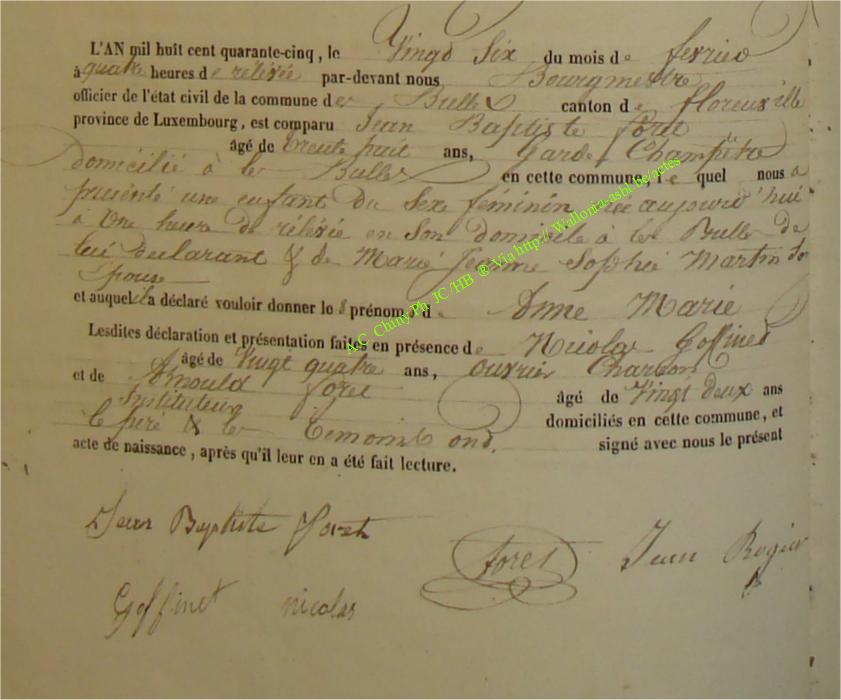 L'AN mil huit cent quarante-cinq, le Vingt Six du mois de fevrier
à quatre heures de relévée par-devant nous Bourgmestre
officier de l'état civil de la commune de les Bulles canton de florenville
province de Luxembourg, est comparu Jean Baptiste foret
âgé de trente huit ans, Garde Champêtre
domicilié à les Bulles en cette commune, le quel nous a
présenté une enfant du Sexe féminin née aujourd'hui
à Une heure de rélévée en Son domicile à les Bulles de
lui declarant & de Marie Jeanne Sophie Martin so
Epouse
et auquel il a déclaré vouloir donner les prénoms d Anne Marie
Lesdites déclaration et présentation faites en présence de Nicolas Goffinet
âgé de Vingt quatre ans, ouvrier Charron
et de Arnould foret âgé de Vingt deux ans
Instituteur domiciliés en cette commune, et
le père & les temoins ond. signé avec nous le présent
acte de naissance, après qu'il leur en a été fait lecture.
Jean Baptiste foret
foret Jean Rogier
Goffinet nicolas
A.G. Chiny Ph. JC/HB ® Via http:// Wallonia-asbl.be/actes